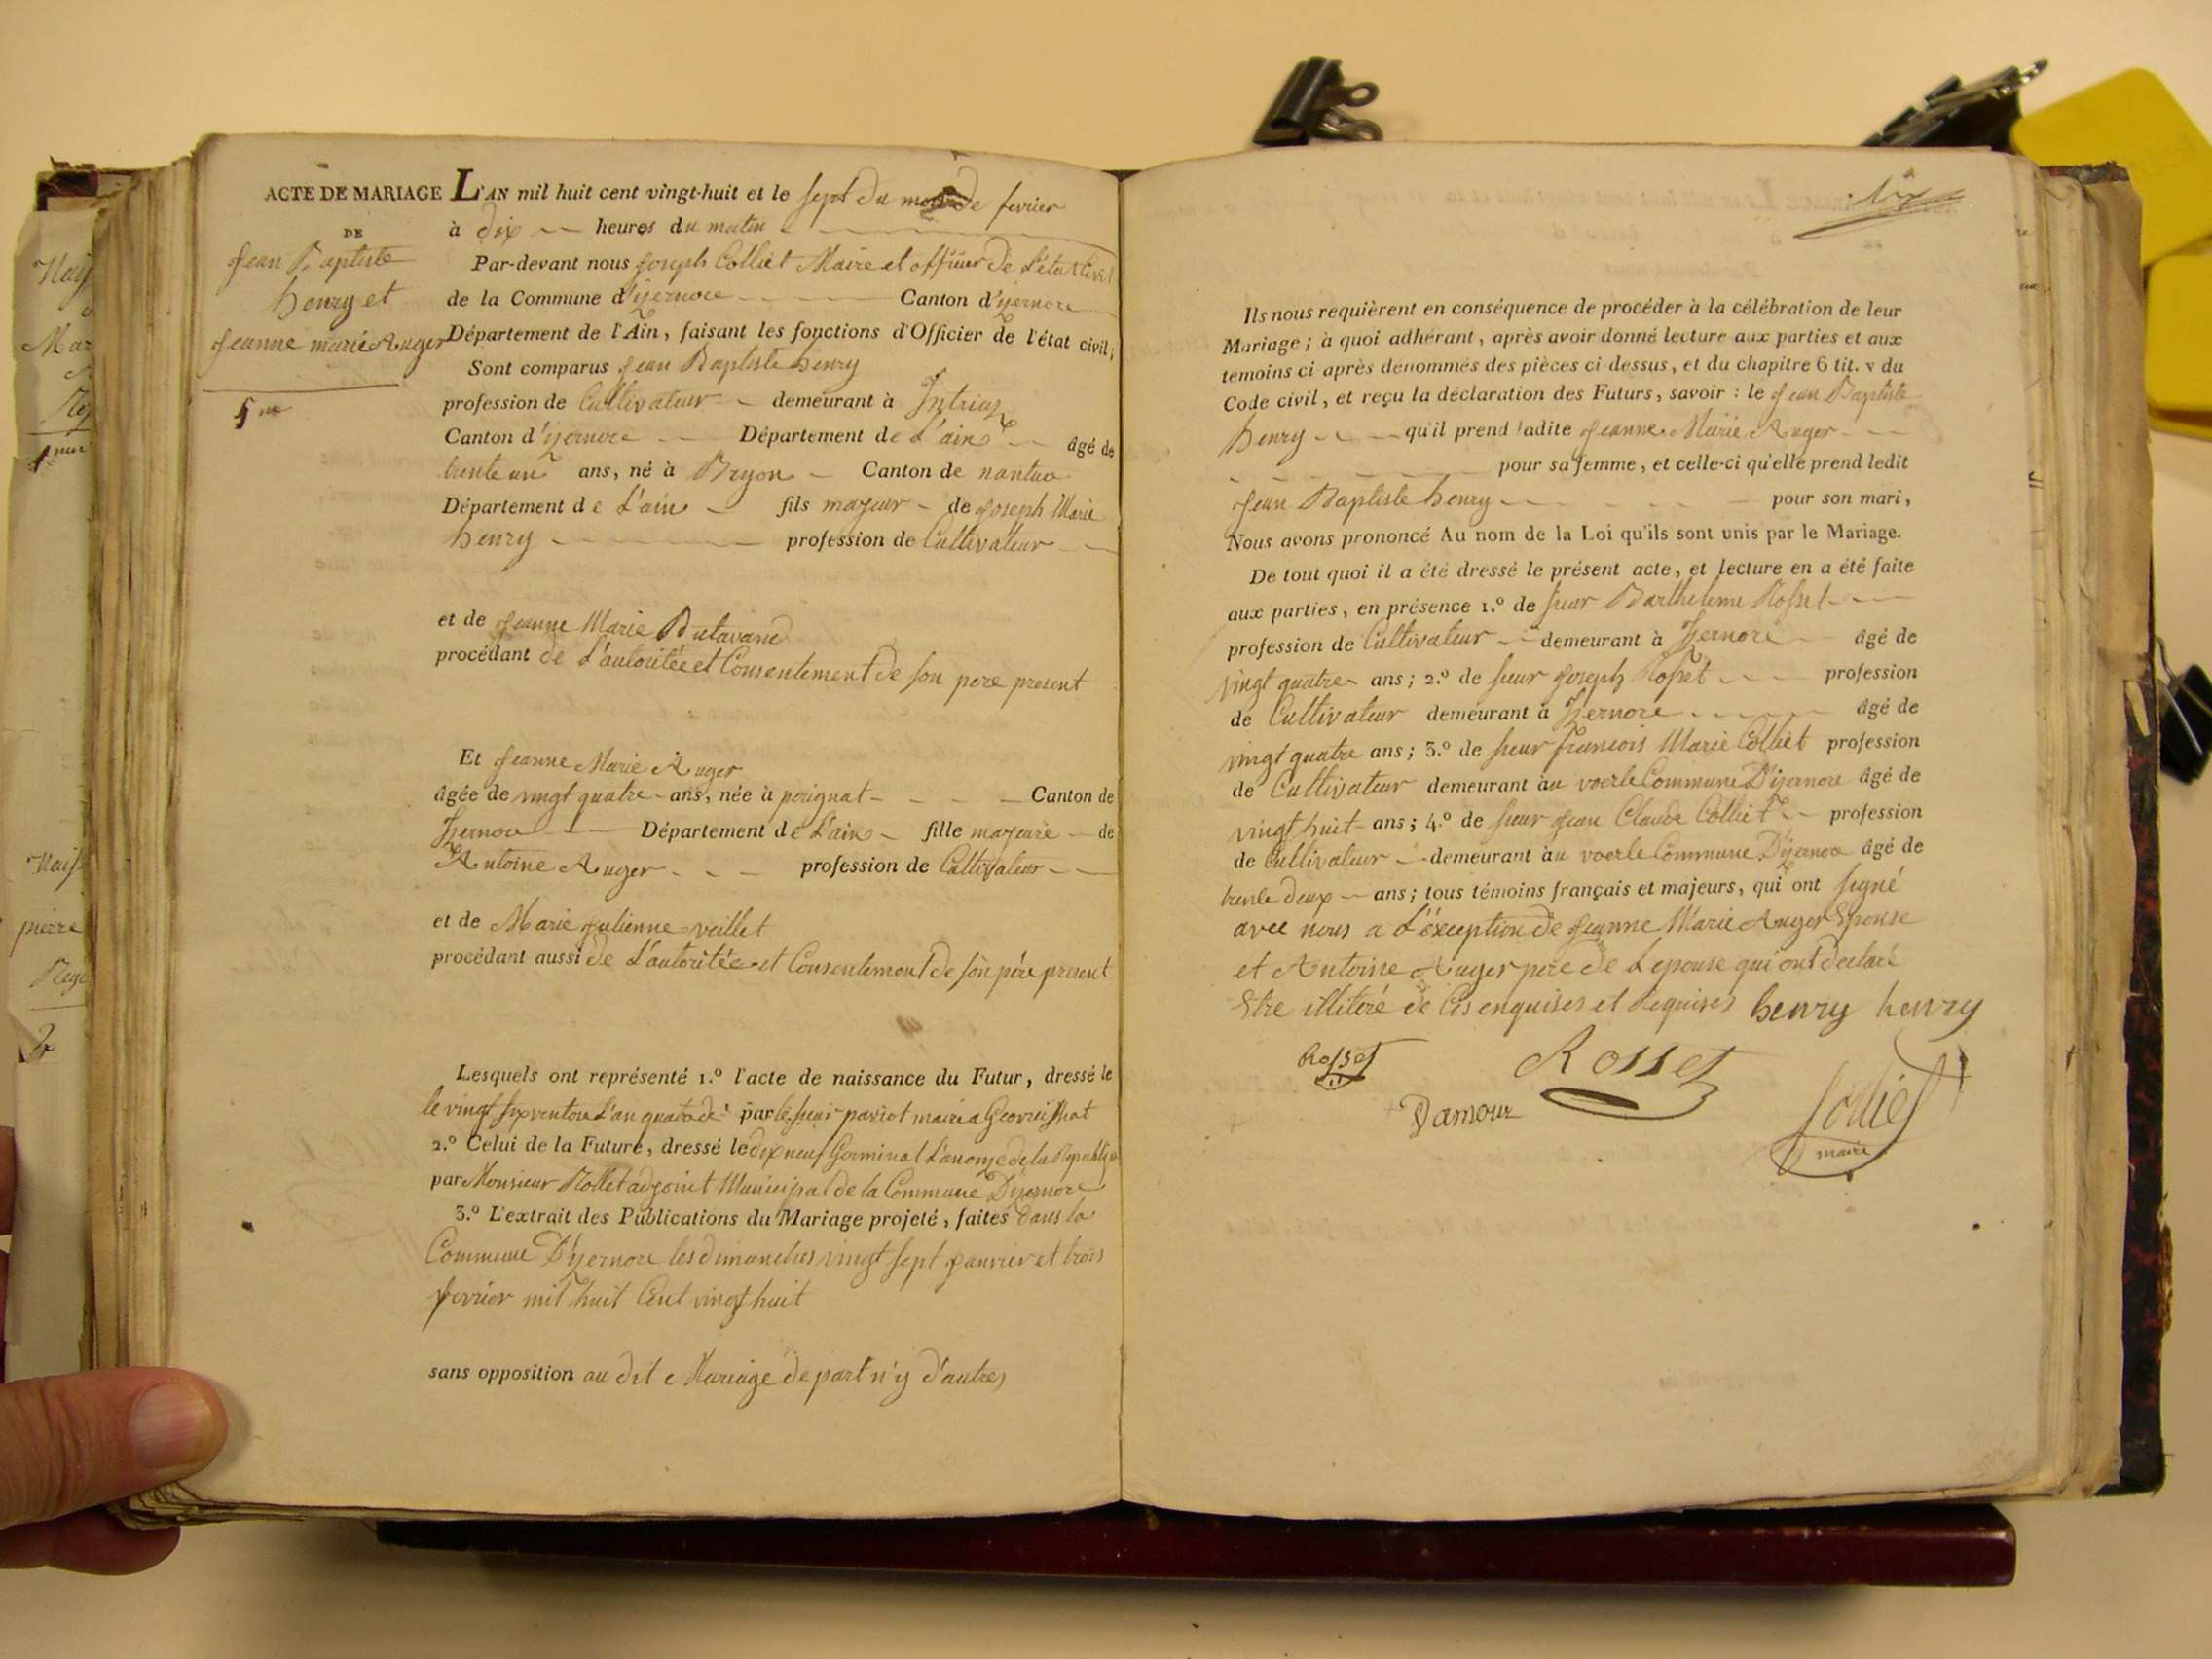 ACTE DE MARIAGE
DE
Jean Baptiste
henry et
Jeanne marie Auger
5me
L'AN mil huit cent vingt-huit et le sept du mois de fevrier
à dix heures du matin
Par-devant nous Joseph Colliet Maire et officier de L'état Civil
de la Commune d'yzernore Canton d'yzernore
Département de l'Ain, faisant les fonctions d'Officier de l'état civil;
Sont comparus Jean Baptiste henry
profession de Cultivateur demeurant à Intriaz
Canton d'yzernore Département de L'ain âgé de
trente un ans, né à Bryon Canton de nantua
Département de L'ain fils majeur de Joseph Marie
henry profession de Cultivateur
et de Jeanne Marie Butavand
procédant de L'autoritée et Consentement de son pere present
Et Jeanne Marie Auger
âgée de vingt quatre ans, née à perignat Canton de
Yzernore Département de L'ain fille majeure de
Antoine Auger profession de Cultivateur
et de Marie Julienne veillet
procédant aussi de L'autoritée et Consentement de son pére present
Lesquels ont représenté 1.º l'acte de naissance du Futur, dressé le
le vingt six ventose L'an par le sieur pariot maire a Geovreissiat
2.º Celui de la Future, dressé le dix neuf Germinal L'an onze de la Republique
par Monsieur Rollet adjoint Municipal de la Commune D'yzernore
3.º L'extrait des Publications du Mariage projeté, faites dans la
Commune D'yzernore les dimanches vingt sept janvier et trois
fevrier mil huit Cent vingt huit
sans opposition au dit Mariage de part n'y d'autres
Ils nous requièrent en conséquence de procéder à la célébration de leur
Mariage; à quoi adhérant, après avoir donné lecture aux parties et aux
témoins ci après dénommés des pièces ci dessus, et du chapitre 6 tit. v du
Code civil, et reçu la déclaration des Futurs, savoir : le Jean Baptiste
henry qu'il prend ladite Jeanne Marie Auger
pour sa femme, et celle-ci qu'elle prend ledit
Jean Baptiste henry pour son mari,
Nous avons prononcé Au nom de la Loi qu'ils sont unis par le Mariage.
De tout quoi il a été dressé le présent acte, et lecture en a été faite
aux parties, en présence 1.º de sieur Barthelemi Rosset
profession de Cultivateur demeurant à Yzernore âgé de
vingt quatre ans; 2.º de sieur Joseph Rosset profession
de Cultivateur demeurant à Yzernore âgé de
vingt quatre ans; 3.º de sieur francois Marie Colliet profession
de Cultivateur demeurant au voerle Commune D'yzernore âgé de
vingt huit ans; 4.º de sieur Jean Claude Colliet profession
de Cultivateur demeurant au voerle Commune D'yzernore âgé de
trente deux ans; tous témoins français et majeurs, qui ont signé
avec nous a L'éxception de Jeanne Marie Auger Epouse
et Antoine Auger pere de L'epouse qui ont declaré
Etre illiteré de Ces enquises et Requises henry henry
Rosset
Rosset
Damour
Colliet
maire